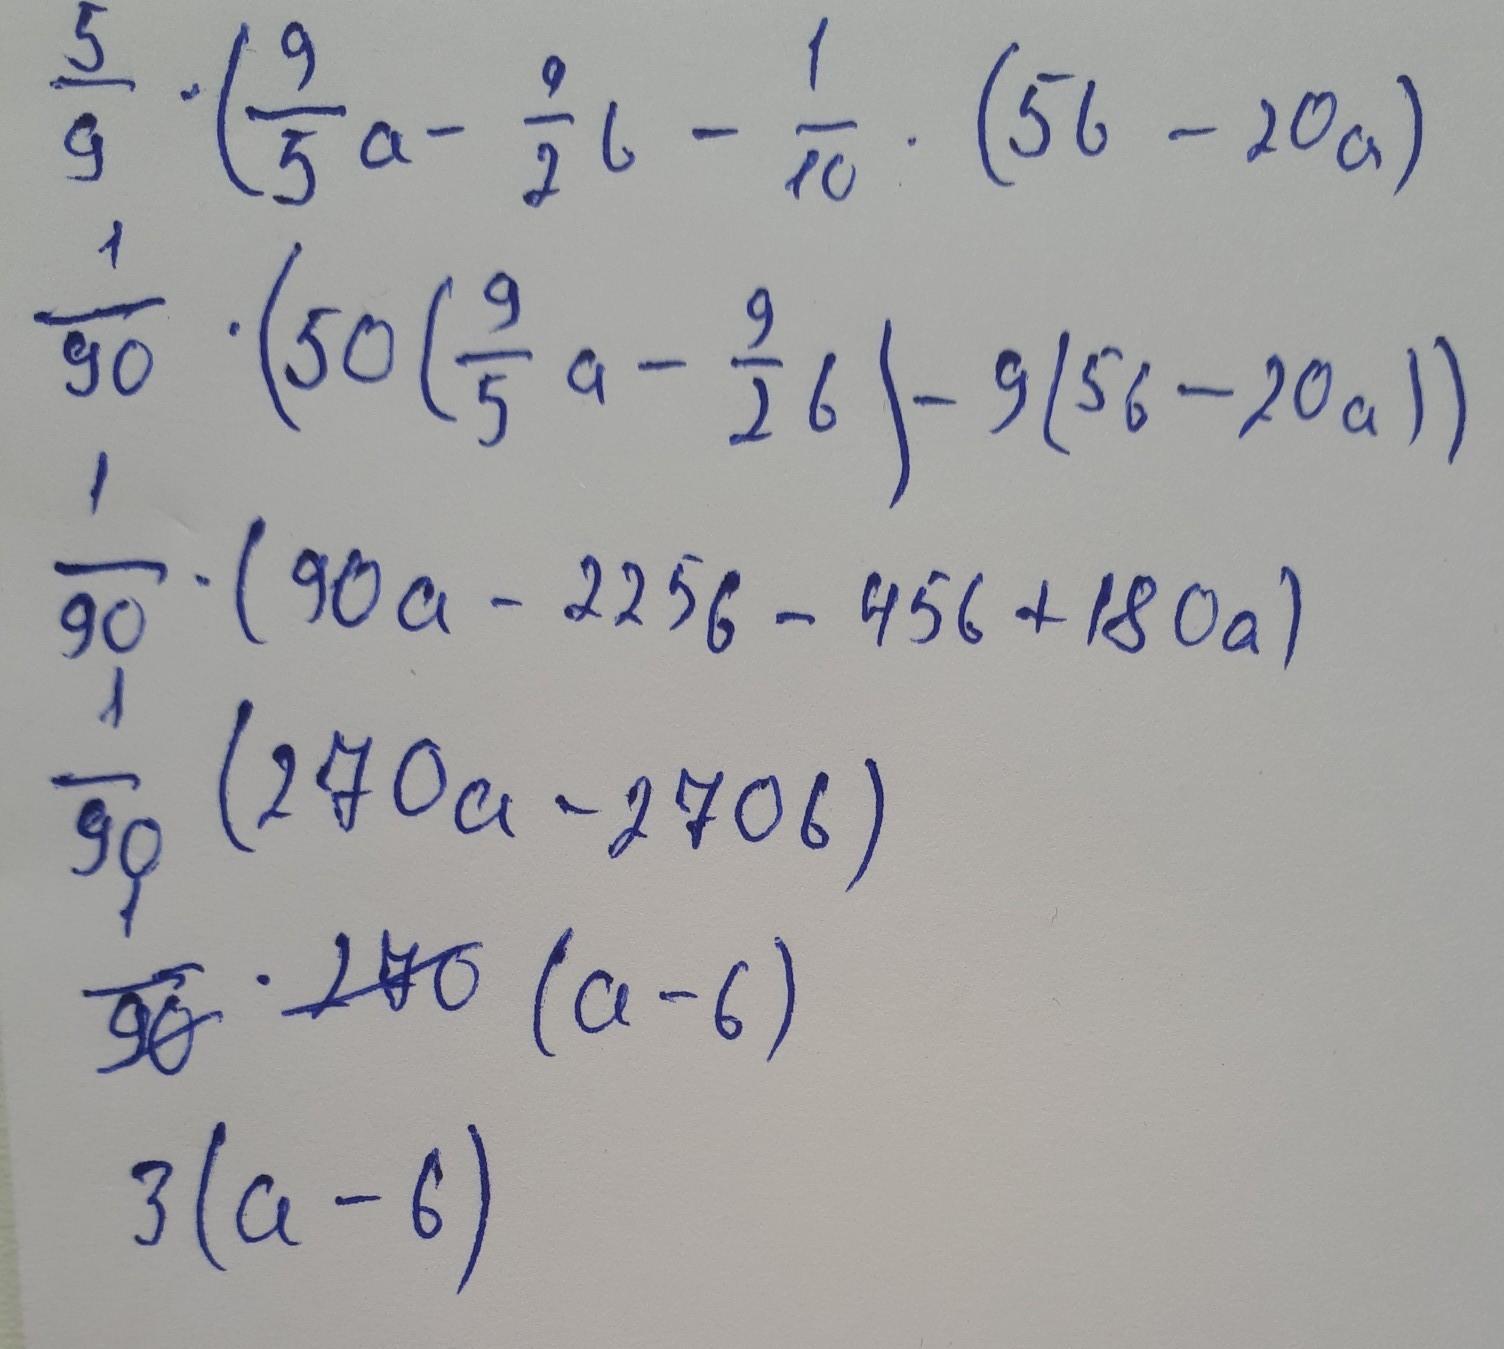 5/9 · (9/5 a - 9/2 b - 1/10 · (5b - 20a)
1/90 · (50(9/5 a - 9/2 b) - 9(5b - 20a))
1/90 · (90a - 225b - 45b + 180a)
1/90 (270a - 270b)
1/90 · 270 (a - b)
3(a - b)